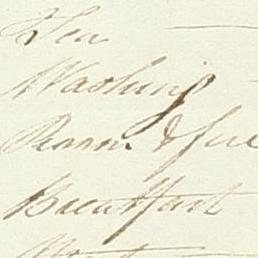 Tea
Washing
Room & fire
Breakfast